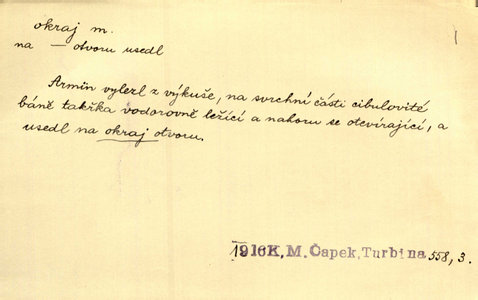 okraj m.
na — otvoru usedl
Armin vylezl z výkuše, na svrchní části cibulovité
báně takřka vodorovně ležící a nahoru se otevírající, a
usedl na okraj otvoru.
1916 K. M. Čapek, Turbina 558, 3.